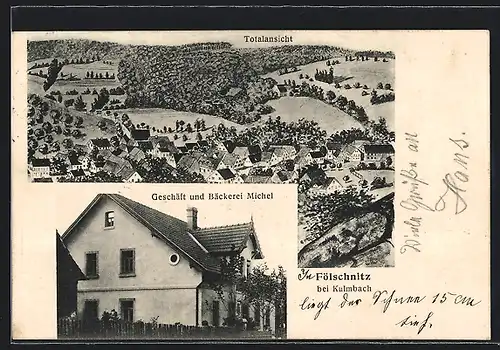 Totalansicht
Geschäft und Bäckerei Michel
In Fölschnitz
bei Kulmbach
liegt der Schnee 15 cm
tief.
Viele Grüße an
Hans.